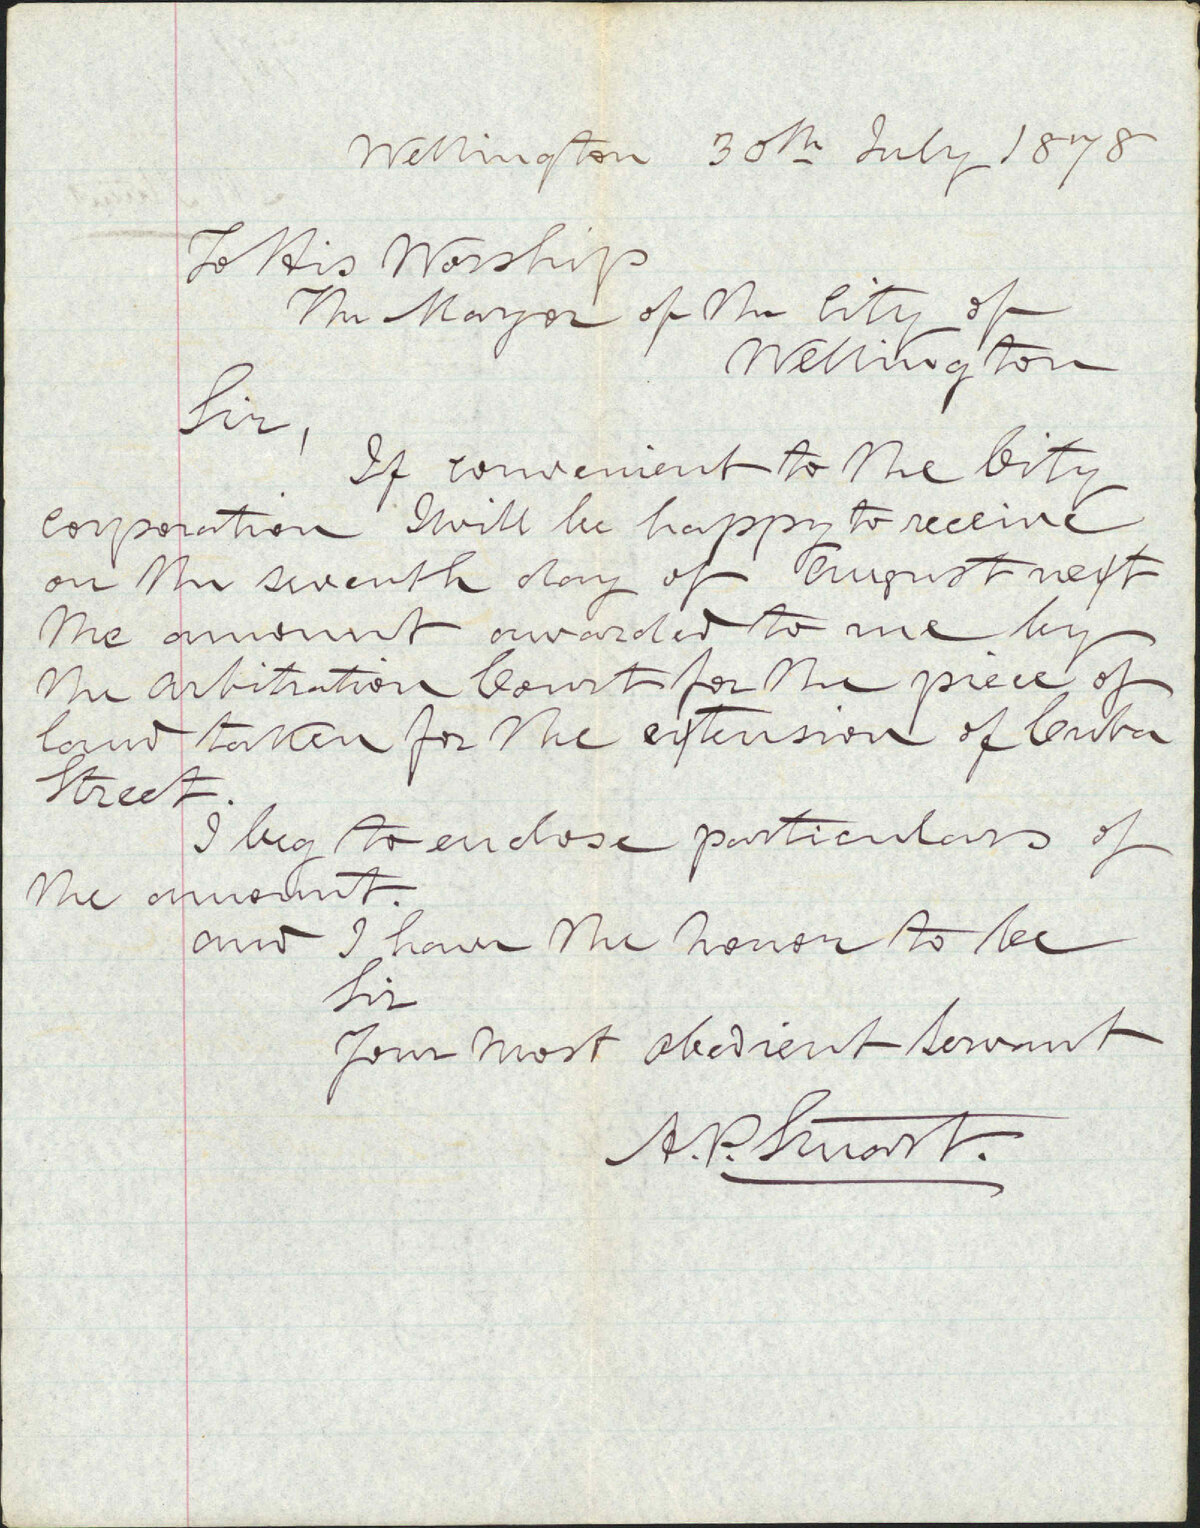 Wellington 30th July 1878
To His Worship
The Mayor of the City of
Wellington
Sir,
If convenient to the City
corporation I will be happy to receive
on the seventh day of August next
the amount awarded to me by
the Arbitration Court for the piece of
land taken for the extension of Cuba
Street.
I beg to enclose particulars of
the amount.
and I have the honor to be
Sir
Your most obedient servant
A.P. Stuart.